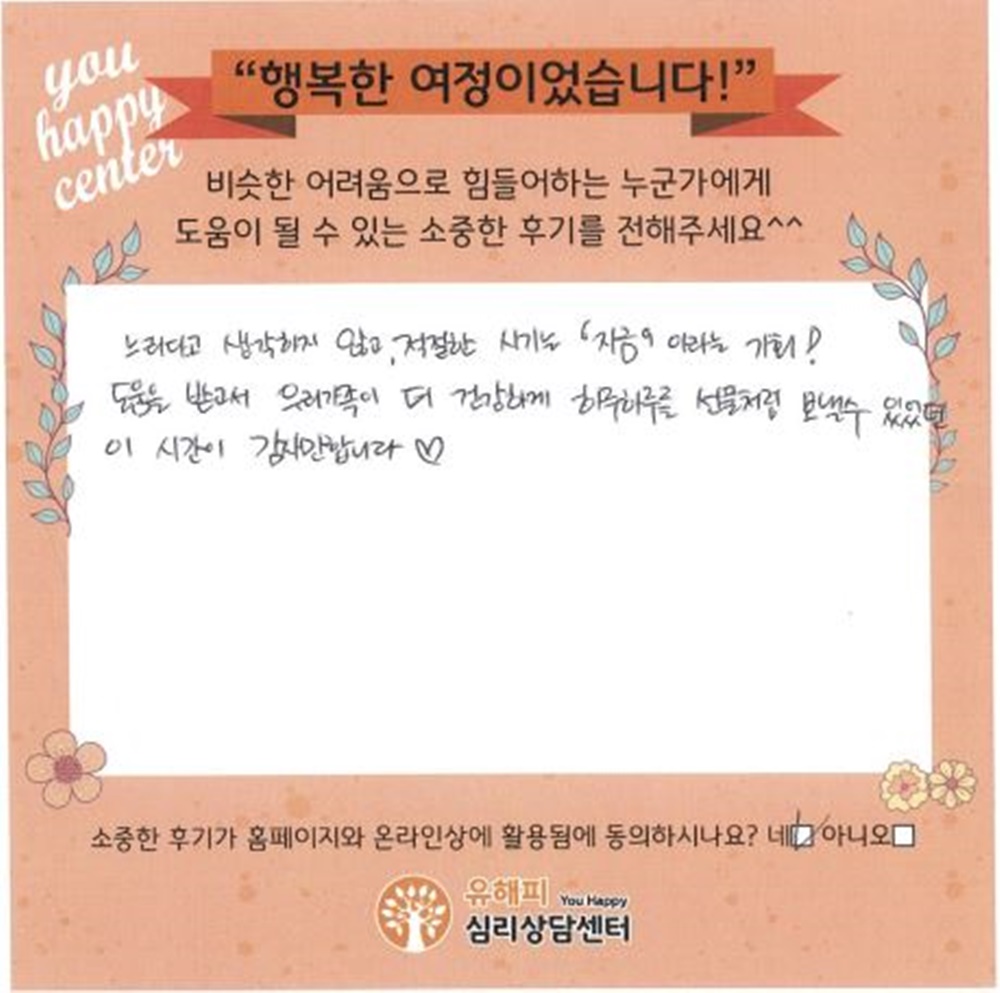 you
happy
center
“행복한 여정이었습니다!”
비슷한 어려움으로 힘들어하는 누군가에게
도움이 될 수 있는 소중한 후기를 전해주세요^^
느리다고 생각하지 않고, 적절한 시기는 '지금' 이라는 기회!
도움을 받고서 우리가족이 더 건강하게 하루하루를 선물처럼 보낼수 있었던
이 시간이 감사만합니다 ♡
소중한 후기가 홈페이지와 온라인상에 활용됨에 동의하시나요? 네☑ 아니오☐
유해피 You Happy
심리상담센터